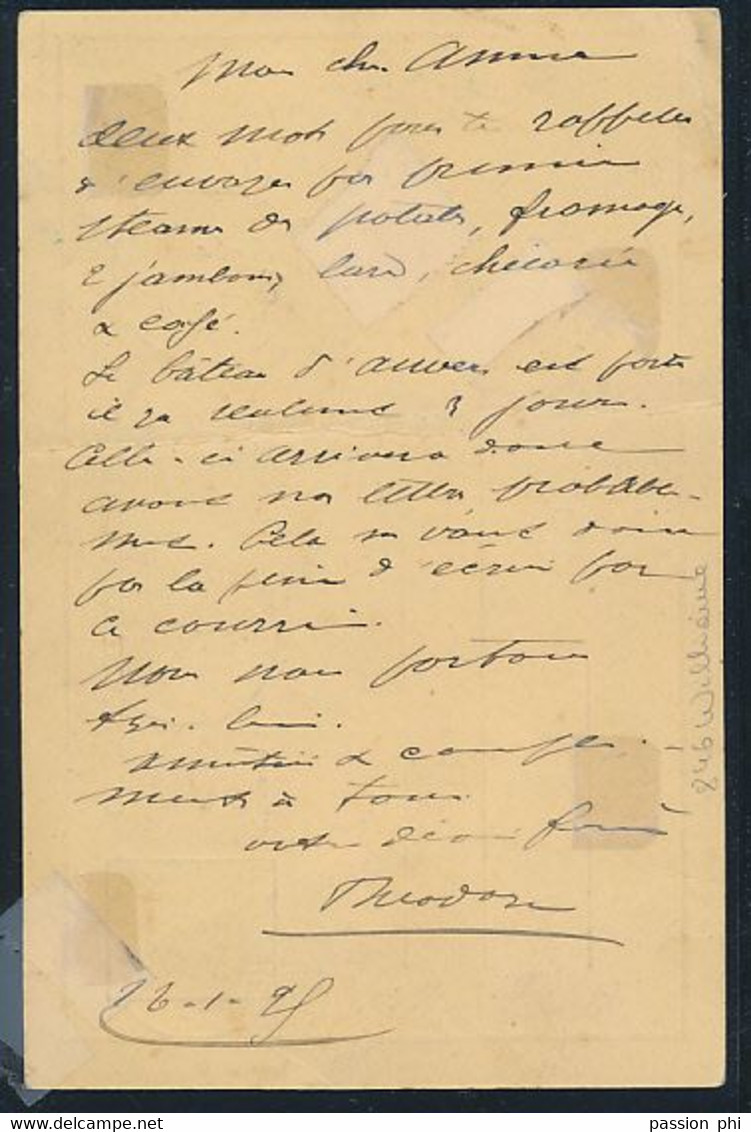 Mon cher
deux mots pour te rappeler
d'envoyer par premier
steamer des potates, fromage,
2 jambons, lard, chicorée
& café.
Le bâteau d'Anvers est parti
il y a seulement 3 jours.
Celle-ci arrivera donc
avant ma lettre probable-
ment. Cela ne vaut donc
pas la peine d'écrire par
ce courrier.
Nous nous portons
très bien.
Amitiés & compli-
ments à tous
votre dévoué
Theodore
26-1-95
246 Williame
passion phi